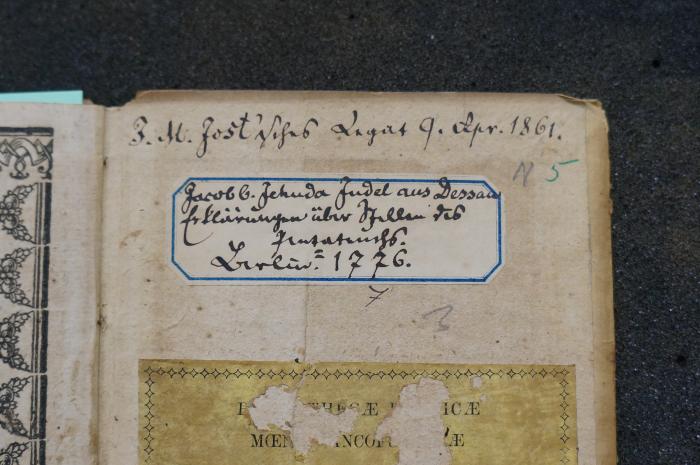 J. M. Jost'sches Legat 9. Apr. 1861.
N 5
Jacob b. Jehuda Judel aus Dessau
Erklärungen über Stellen des
Pentateuchs.
Berlin 1776.
7
3
B THECÆ ICÆ
MŒN NCOF Æ